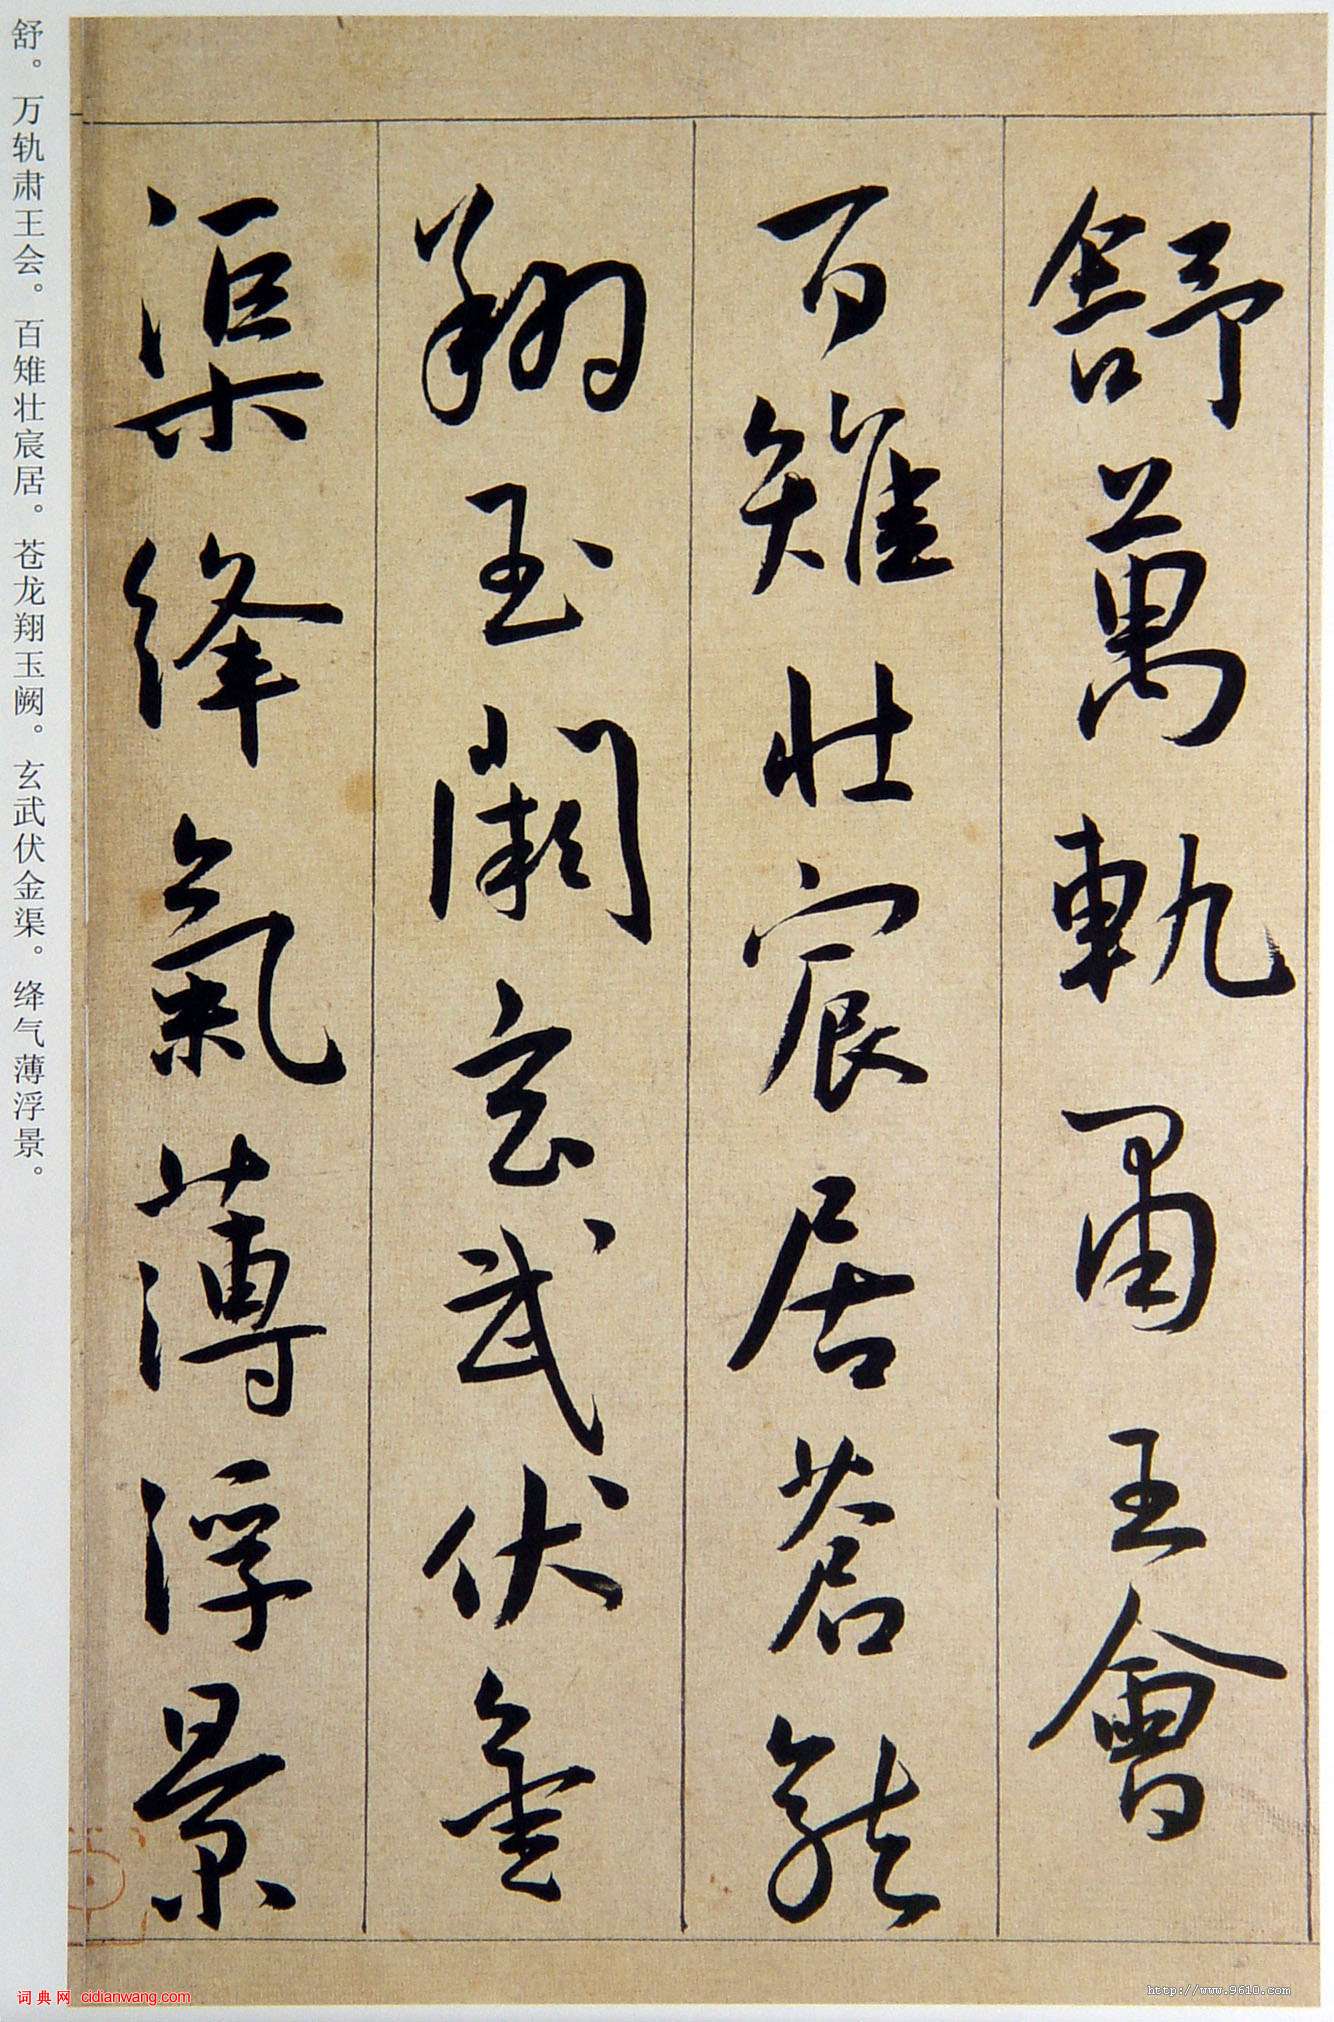 舒萬軌肅王會
百雉壯宸居蒼龍
翔玉闕玄武伏金
渠絳氣薄浮景
舒。万轨肃王会。百雉壮宸居。苍龙翔玉阙。玄武伏金渠。绛气薄浮景。
词典网 cidianwang.com
http://www.9610.com